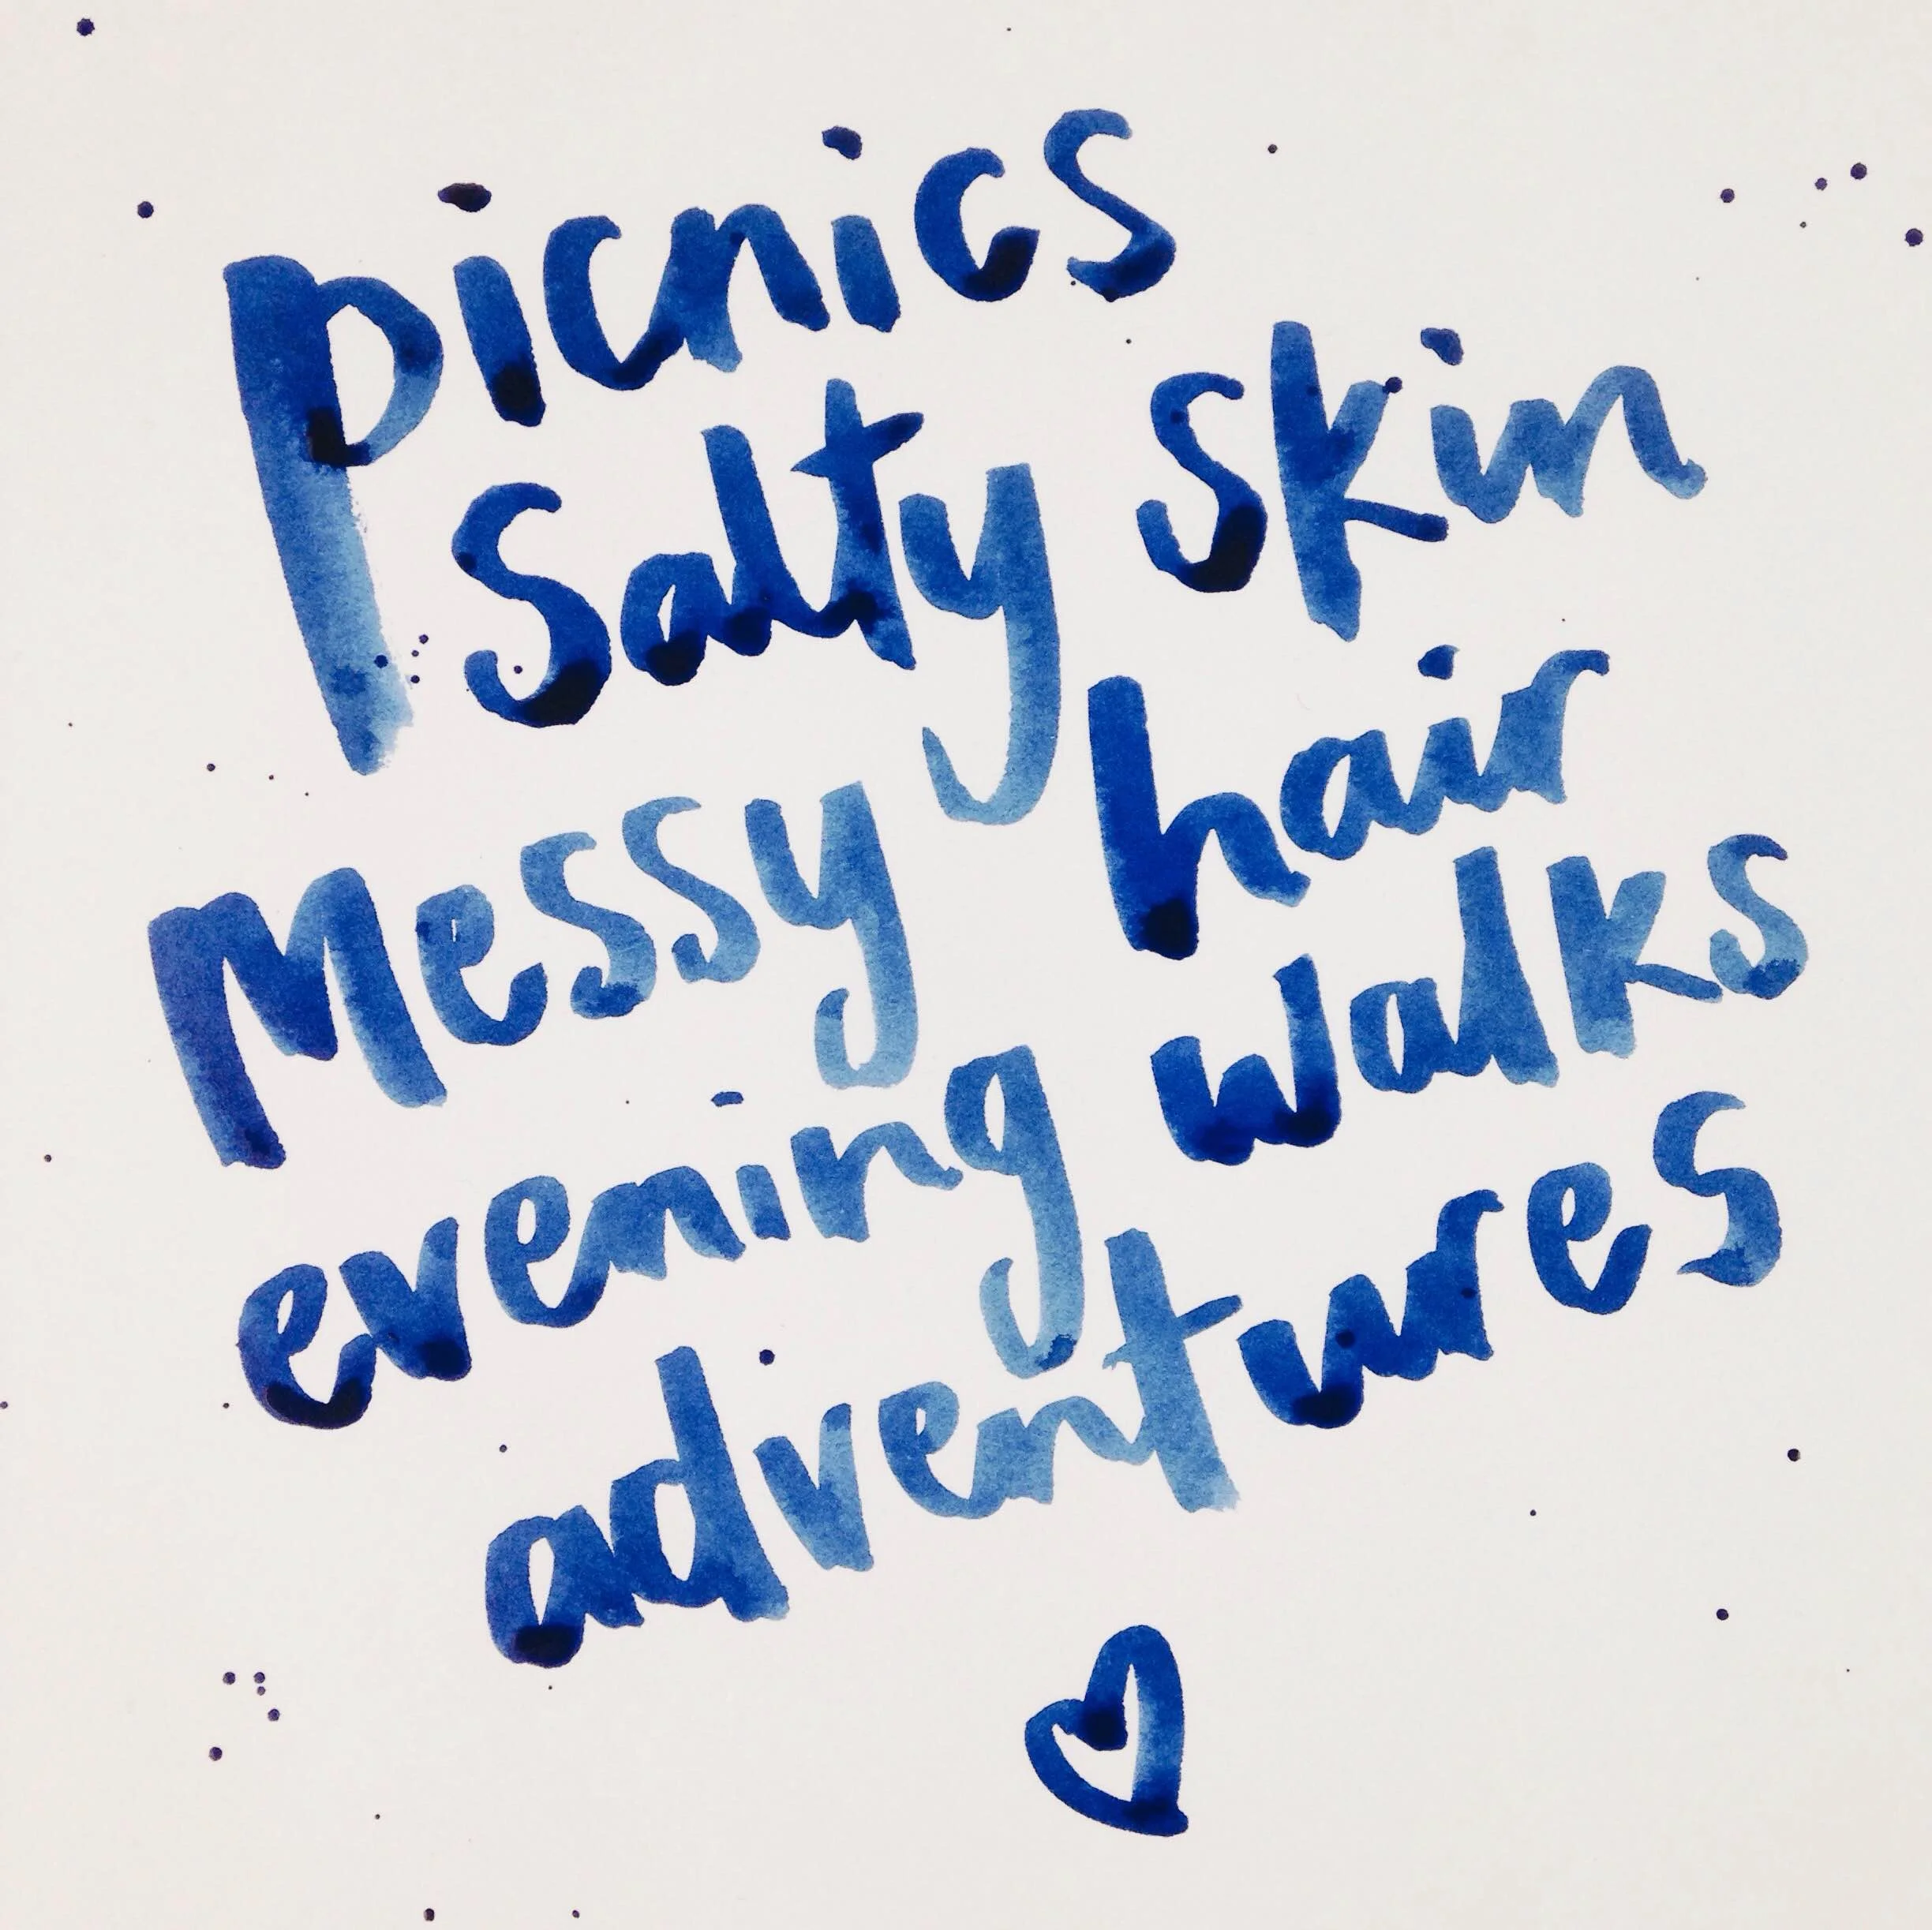 picnics
salty skin
messy hair
evening walks
adventures